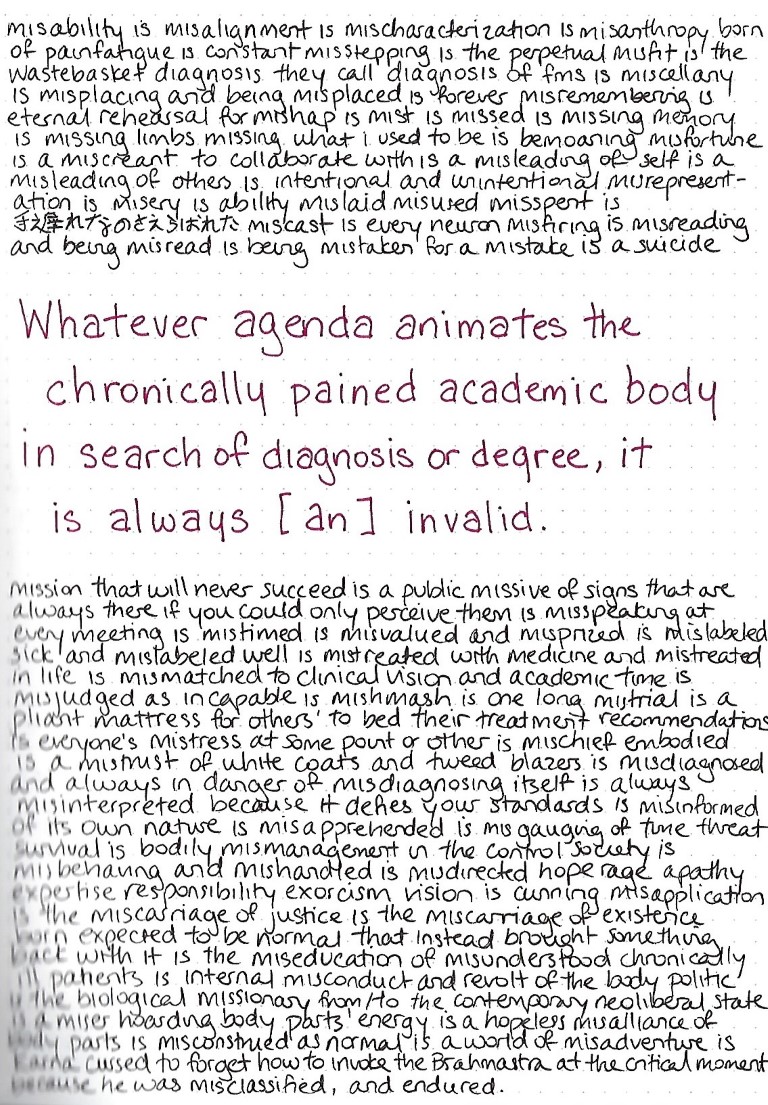 misability is misalignment is mischaracterization is misanthropy born
of painfatigue is constant misstepping is the perpetual misfit is the
wastebasket diagnosis they call diagnosis of fms is miscellany
is misplacing and being misplaced is forever misremembering is
eternal rehearsal for mishap is mist is missed is missing memory
is missing limbs missing what i used to be is bemoaning misfortune
is a miscreant to collaborate with is a misleading of self is a
misleading of others is intentional and unintentional misrepresent-
ation is misery is ability mislaid misused misspent is
miscast is every neuron misfiring is misreading
and being misread is being mistaken for a mistake is a suicide
Whatever agenda animates the
chronically pained academic body
in search of diagnosis or degree, it
is always [an] invalid.
mission that will never succeed is a public missive of signs that are
always there if you could only perceive them is misspeaking at
every meeting is mistimed is misvalued and misprized is mislabeled
sick and mislabeled well is mistreated with medicine and mistreated
in life is mismatched to clinical vision and academic time is
misjudged as incapable is mishmash is one long mistrial is a
pliant mattress for others' to bed their treatment recommendations
is everyone's mistress at some point or other is mischief embodied
is a mistrust of white coats and tweed blazers is misdiagnosed
and always in danger of misdiagnosing itself is always
misinterpreted because it defies your standards is misinformed
of its own nature is misapprehended is misgauging of time threat
survival is bodily mismanagement in the control society is
misbehaving and mishandled is misdirected hope rage apathy
expertise responsibility exorcism vision is cunning misapplication
is the miscarriage of justice is the miscarriage of existence
born expected to be normal that instead brought something
back with it is the miseducation of misunderstood chronically
ill patients is internal misconduct and revolt of the body politic
is the biological missionary from/to the contemporary neoliberal state
is a miser hoarding body parts' energy is a hopeless misalliance of
body parts is misconstrued as normal is a world of misadventure is
Karna cursed to forget how to invoke the Brahmastra at the critical moment
because he was misclassified, and endured.